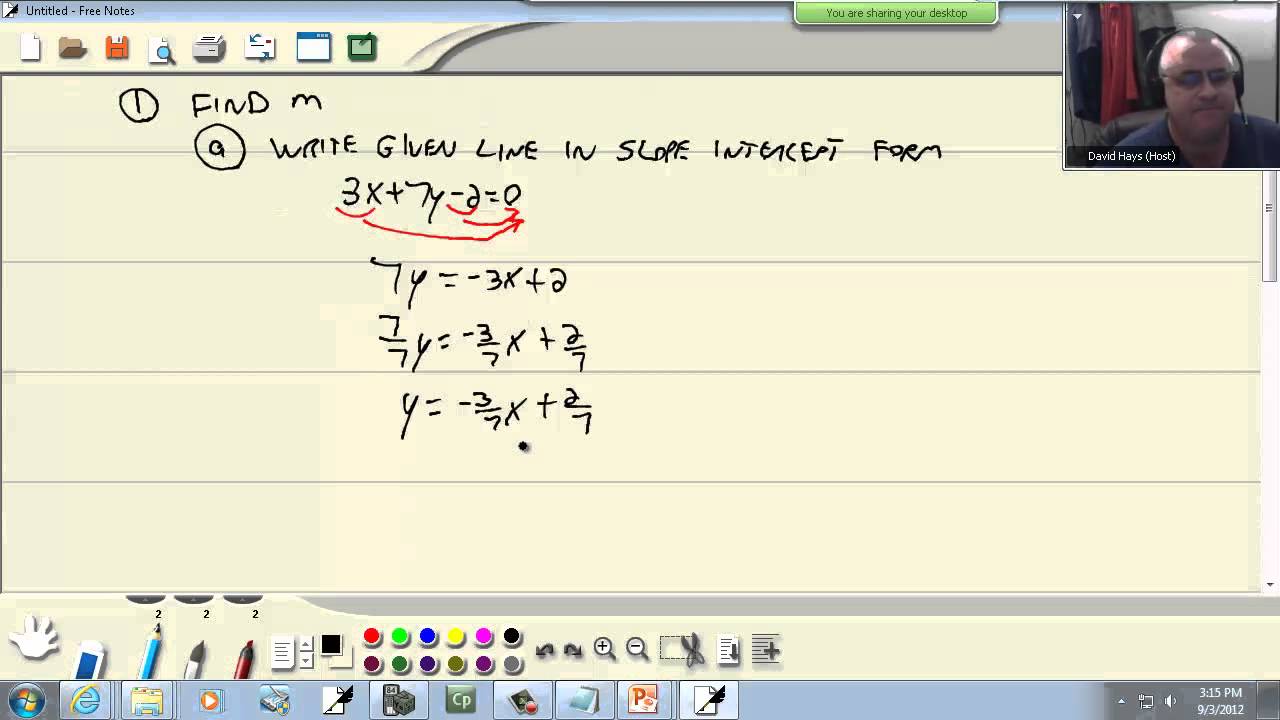 Untitled - Free Notes
You are sharing your desktop
David Hays (Host)
① FIND m
ⓐ WRITE GIVEN LINE IN SLOPE INTERCEPT FORM
3x+7y-2=0
7y=-3x+2
7/7y=-3/7x+2/7
y=-3/7x+2/7
2 2 2
Cp
3:15 PM
9/3/2012